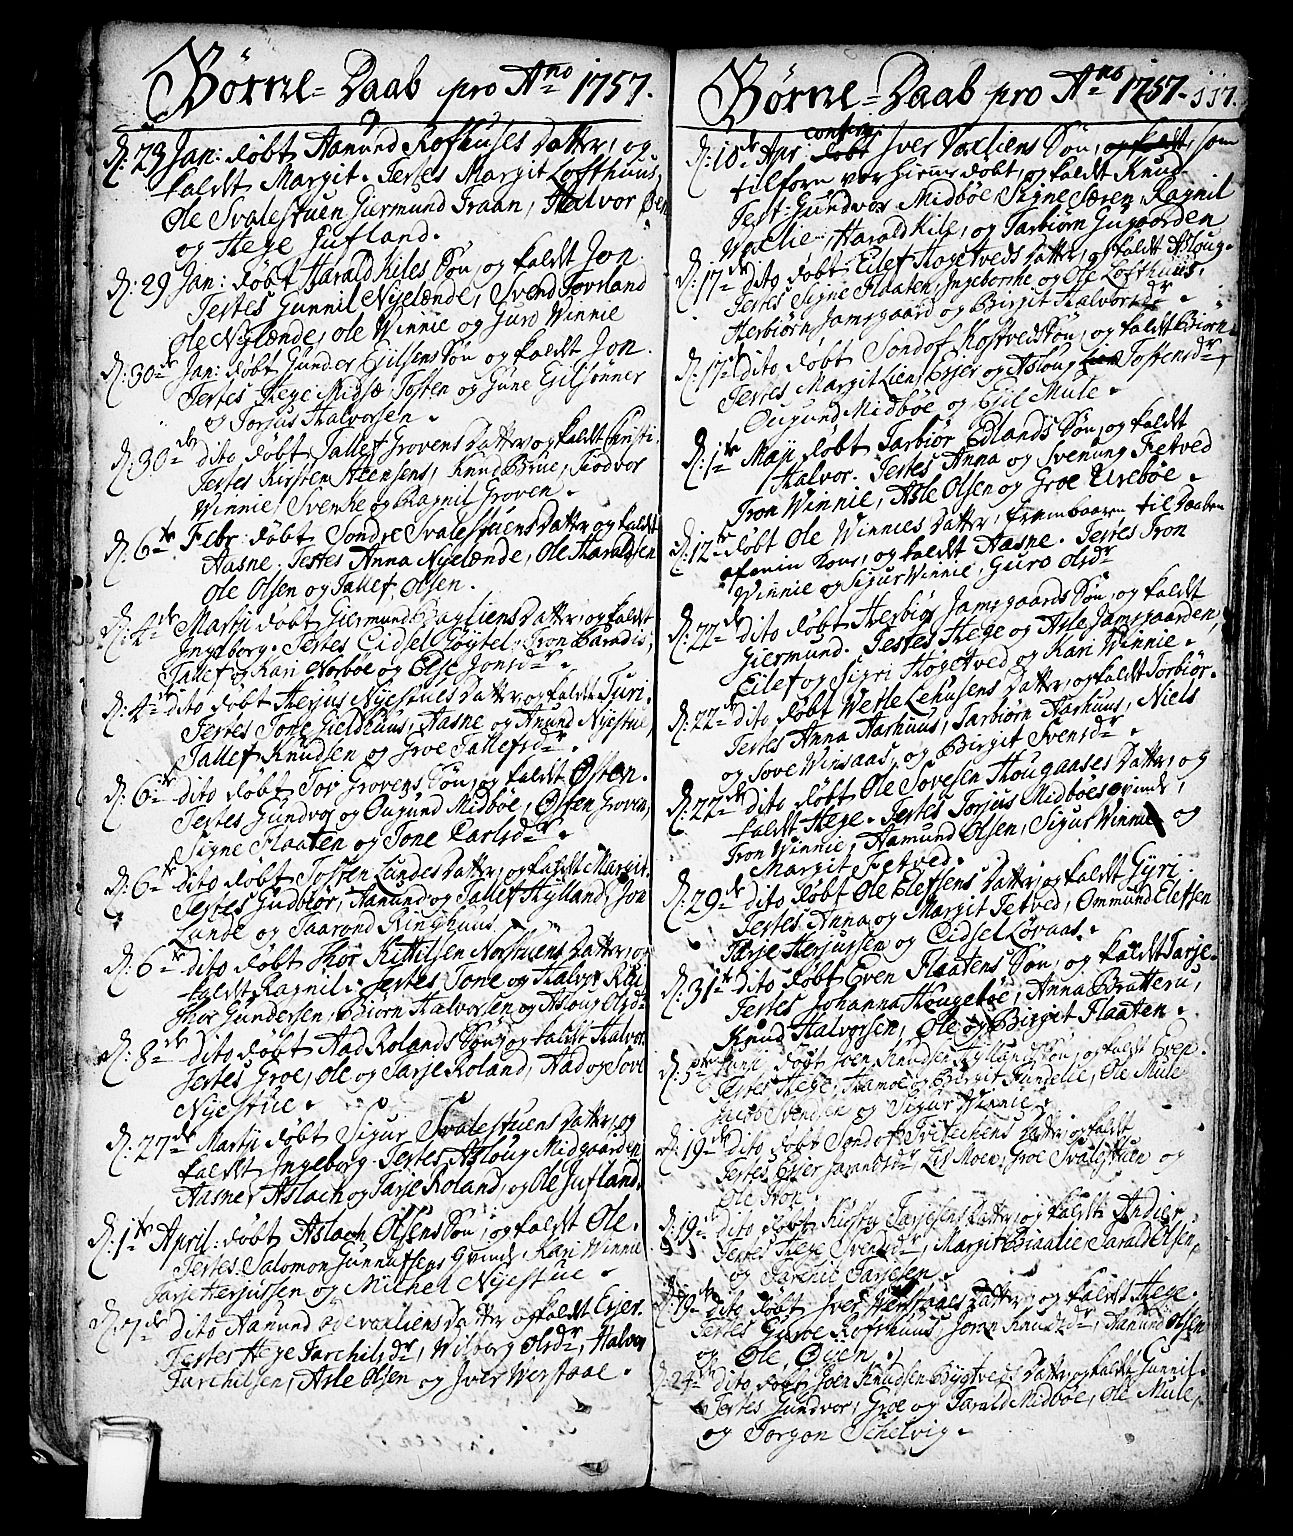 Børne-Daab pro Ano 1757.
D: 23 Jan: døbt Aamund Rofhuses Datter, og
kaldt Margit. Testes Margit Lofthuus,
Ole Svalestuen Giermund Traan, Halvor
og Hege Jufland.
D: 29 Jan: døbt Harald Kiles Søn, og kaldt Jon.
Testes Gunnil Nyelænde, Svend Tovsland
Ole Nyelænde, Ole Winnie og Guro Winnie
D: 30 Jan: døbt Gunder Eijelsens Søn og kaldt Jon.
Testes Hege Midsæ, Tosten og Gune
og Torjus Halvorsen.
D: 30 dito døbt Tallef Grovens Datter, og kaldt
Testes Kirsten Steensens, Knud Brue, Tiodvor
Winnie, Svenke og Ragnil Groven.
D: 6te Febr: døbt Sondre Svalestuens Datter og kaldt
Aasne, Testes Anna Nyelænde, Ole Haraldsen
Ole Olsen og Tallef Olsen.
D: Martij døbt Giermund Dagliens Datter, og kaldt
Ingeborg. Testes Eidsel Tron Paradis,
Tallef og Kari Norboe og Else Jonsdr.
D: 4 dito døbt Herjus Nyestues Datter, og kaldt Turi.
Testes Tone Aasne og Anund Nyestue,
Tallef Knudsen og Groe Tallefsdr.
D: 6te dito døbt Tov Grovens Søn, og kaldt Østen.
Testes Gundvor og Ougund Midbøe, Østen Groven,
Signe Flaaten og Tone Carlsdr.
D: 6te dito døbt Tosten Lundes Datter, og kaldt Margit.
Testes Gudbiør, Aamund og Tallef Hylland, Jon
Lunde og Taarond Ringhuus
D: 6te dito døbt Thor Kittilsen Datter, og
kaldt Ragnil. Testes Tone og Halvor
Thor Gundersen, Biørn Halvorsen og Asloug Olsdr.
D: 8de dito døbt Aad Rolands Søn og kaldt Halvor.
Testes Groe, Ole og Tarje Roland, Aad og Sove
Nyestue.
D: 27de Martij døbt Sigur Svalestuens Datter, og
kaldt Ingeborg. Testes Aasloug Midgaarden
Aasne, Aslach og Tarje Roland, og Ole Jufland.
D: 1te April: døbt Aslach Olsens Søn, og kaldt Ole.
Testes Salomon Gunnulfsens Qvinde Kari Winnie
Tarje Herjussen og Michel Nyestue.
D: dito Aamund Datter og kaldt Esjer.
Testes Hege Tarchilsdr, Wilborg Olsdr, Halvor
Tarchilsen, Asle Olsen og Jver Werstaae.
Børne-Daab pro Ano 1757. 117.
D: 10de Apr: døbt Jver Vaaliens Søn, og kaldt, som
tilforn var hiemme døbt, og kaldt Knud
Test: Gundvor Midbøe, Signe Særen Ragnil
Vaalie, Harald Kile, og Tarbiørn
D: 17de dito døbt Eilef Høgetveds Datter, og kaldt Asloug.
Testes Signe Flaaten, Ingeborne og Ole Lofthuus,
Herbiørn Jamsgaard og Birgit Halvorsdr.
D: 17de dito døbt Sondof Søn, og kaldt Biørn.
Testes Margit Liens Esjer og Asloug Tostensdr,
Ougund Midbøe og Egil Mule.
D: 1te Maji døbt Tarbiør Edlands Søn, og kaldt
Halvor. Testes Anna og Svenung Fetved
Tron Winnie, Asle Olsen og Groe Urebøe.
D: 12te døbt Ole Winnies Datter, frembaaren til Daaben
af Kone, og kaldt Aasne. Testes Tron
Winnie og Sigur Winnie, Guro Olsdr
D: 22de dito døbt Herbiør Jamsgaards Søn, og kaldt
Giermund. Testes Hege og Asle Jamsgaarden,
Eilef og Sigri Høgetved og Kari Winnie.
D: 22de dito døbt Wetle Lehusens Datter, og kaldt Torbiør.
Testes Anna Aarhuus, Tarbiørn Aarhuus, Niels
og Sove Winsaas, og Birgit Svensdr.
D: 22de dito døbt Ole Sovesen Hougaases Datter, og
kaldt Hege. Testes Torjuis Midboes qvinde,
Tron Winnie, Aamund Olsen, Sigur Winnie og
Margit Fetved.
D: 29de dito døbt Ole Elefsens Datter, og kaldt Gyri.
Testes Anna og Margit Fetved, Ommund Elefsen
Tarje Herjussen og Eidsel Løvaas.
D: 31te dito døbt Even Flaatens Søn, og kaldt Tarje.
Testes Johanna Hougebøe, Anna Bratterud,
Knud Halvorsen, Ole og Birgit Flaaten.
D: 5te Junij døbt Joen Knudsen Hyllands Søn, og kaldt Even.
Testes Hege, og Birgit Ole Mule
Svendsen og Sigur Winnie.
D: 19de dito døbt Sondof Datter, og kaldt
Testes Esjer Liv Moen, Groe Svalestuen og
Ole
D: 19de dito døbt Tarjesens Datter, og kaldt
Testes Hege Svendsdr, Margit Biaalie, Tarald Olsen,
og Tarchil Tarjesen.
D: 19de dito døbt Jver Werstaaes Datter, og kaldt Hege.
Testes Guroe Rofshuus, Joran Knudsdr, Aanund Olsen
og Ole Øijen.
D: 24de dito døbt Joen Knudsen Bygtveds Datter, og kaldt Gunnil.
Testes Gundvor, Groe og Tarald Midbøe, Ole Mule,
og Torgon Schelvig.